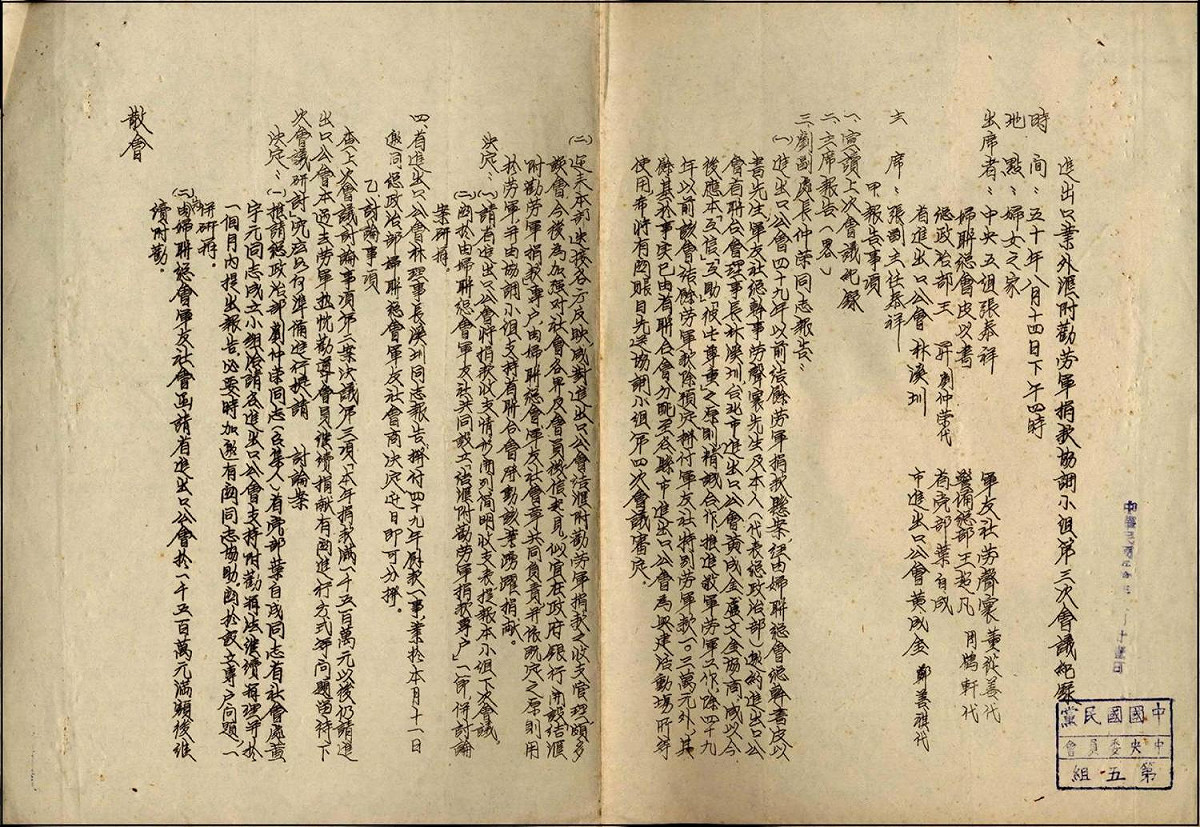 進出口業外滙附勸勞軍捐款協調小組第三次會議紀錄
時　間：五十年八月十四日下午四時
地　點：婦女之家
出席者：中央五組張泰祥　軍友社勞聲寰　黃裕姜代
婦聯總會皮以書　警備總部王超凡　周鶴軒代
總政治部王　昇　劉仲榮代　省黨部葉自成
省進出口公會林溪圳　市進出口公會黃成金　鄭善祺代
主　席：張副主任泰祥
甲、報告事項
一、宣讀上次會議紀錄
二、主席報告（畧）
三、劉副處長仲榮同志報告：
（一）進出口公會四十九年以前結餘勞軍捐款懸案，經由婦聯總會總幹事皮以
書先生軍友社總幹事勞聲寰先生及本人（代表總政治部）邀約進出口公
會省聯合會理事長林溪圳台北市進出口公會黃成金、盧文金協商，咸以今
後應本「互信」「互助」「彼此尊重」之原則，精誠合作，推進敬軍勞軍工作，除四十九
年以前該會結餘勞軍款除預定撥付軍友社特別勞軍款一〇三萬元外，其
餘基於事實已由省聯合會分配至各縣市進出口公會為興建活動場所等
使用，希將有關賬目先送協調小組第四次會議審定。
（二）近來本部迭接各方反映咸對進出口公會結滙附勸勞軍捐款之收支管理頗多
談會今後為加強對社會各界及會員徵信起見，似宜在政府銀行開設結滙
附勸勞軍捐款「專戶」由婦聯總會軍友社會等共同負責并依既定之原則用
於勞軍并由協調小組支持省聯合會附勸該業踴躍捐獻。
決定：（一）請省進出口公會將捐款收支情形開列簡明收支表提報本小組下次會議。
（二）關於由婦聯總會軍友社共同設立「結滙附勸勞軍捐款專戶」一節併討論
案研辦。
四、省進出口公會林理事長溪圳同志報告，撥付四十九年尉款一事業於本月十一日
邀同總政治部婦聯總會軍友社會商決定近日即可分撥。
乙、討論事項
查上次會議討論事項第二案決議第三項「本年捐款滿一千五百萬元以後仍請進
出口公會本過去勞軍熱忱勸導會員繼續捐獻有關進行方式等問題留待下
次會議研討」究應如何準備進行提請　討論案
決定：（一）推請總政治部劉仲榮同志（召集人）省黨部葉自成同志省社會處黃
宇元同志成立小組洽請各進出口公會支持附勸辦法繼續辦理并於
一個月內提出報告必要時加邀有關同志協助關於設立專戶問題，一
併研辦。
（二）由婦聯總會軍友社會函請省進出口公會於一千五百萬元滿額後繼
續附勸。
散會
中國國民黨
中央委員會
第五組